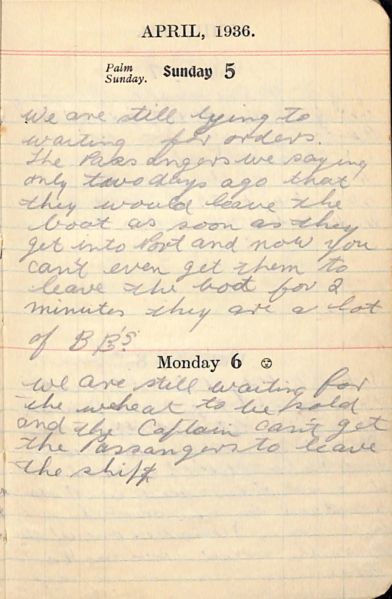 APRIL, 1936.
Palm
Sunday.
Sunday 5
We are still lying to
waiting for orders.
The Passangers we saying
only two days ago that
they would leave the
boat as soon as they
get into Port and now you
can't even get them to
leave the bot for 2
minutes they are a lot
of B B's.
Monday 6
We are still waiting for
the wheat to be sold
and the Captain can't get
the Passangers to leave
the ship.